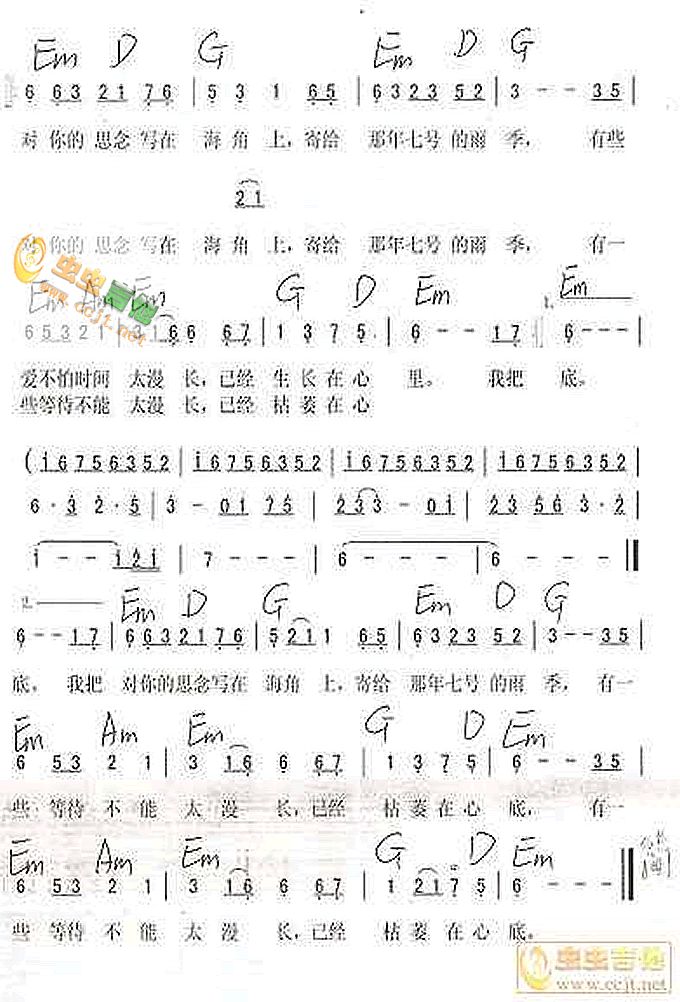 Em D G Em D G
6 63 21 76 | 5 3 1 65 | 6323 52 | 3 - - 35 |
对你的思念写在 海角上,寄给 那年七号的雨 季, 有些
21
对你的思念写在 海角上,寄给 那年七号的雨季, 有一
Em Am Em G D Em 1. Em
65321 | 3166 67 | 1 3 7 5 | 6 - - 17 6 - - -
爱不怕时间 太漫 长,已经 生长在心 里。 我把 底。
些等待不能 太漫长,已经 枯萎在心
虫虫吉他
www.ccjt.net
(i6756352 | i6756352 | i6756352 | i6756352 |
6 · 3 2 · 5 | 3 - 01 75 | 233 - 0i | 23 56 3 · 2 |
i - - i2i | 7 - - - | 6 - - - | 6 - - -
2.
Em D G Em D G
6 - - 17 | 663 21 76 | 5211 65 | 6323 52 | 3 - - 35
底, 我把 对你的思念写在 海角 上,寄给 那年七号的雨 季, 有一
Em Am Em G D Em
6 53 2 1 | 3 16 6 67 | 1 3 7 5 | 6 - - 35
些 等待 不 能 太 漫 长,已经 枯 萎 在 心 底, 有一
Em Am Em G D Em
6 53 2 1 | 3 16 6 67 | 1 21 7 5 | 6 - - -
些 等待 不 能 太 漫 长,已经 枯 萎 在 心 底。
虫虫吉他
www.ccjt.net